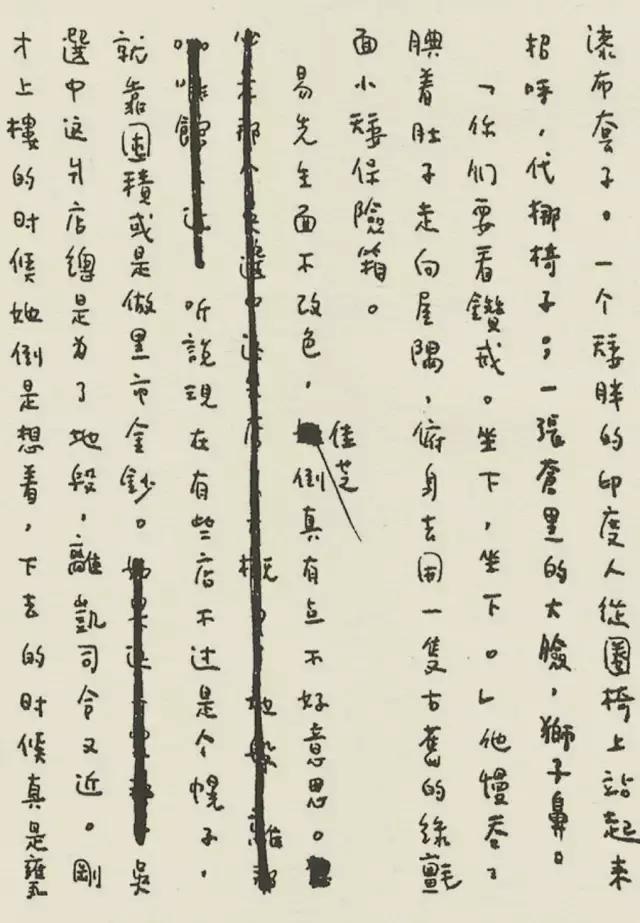 漆布套子。一个矮胖的印度人從圈椅上站起来
招呼，代挪椅子；一張蒼黑的大臉，獅子鼻。
「你们要看鑽戒。坐下，坐下。」他慢吞々
腆着肚子走向屋隅，俯身去開一隻古舊的绿氈
面小矮保險箱。
易先生面不改色，佳芝倒真有点不好意思。
听說現在有些店不过是个幌子，
就靠囤積或是做黑市金鈔。吳
選中这爿店總是为了地段，離凱司令又近。剛
才上樓的时候她倒是想着，下去的时候真是甕